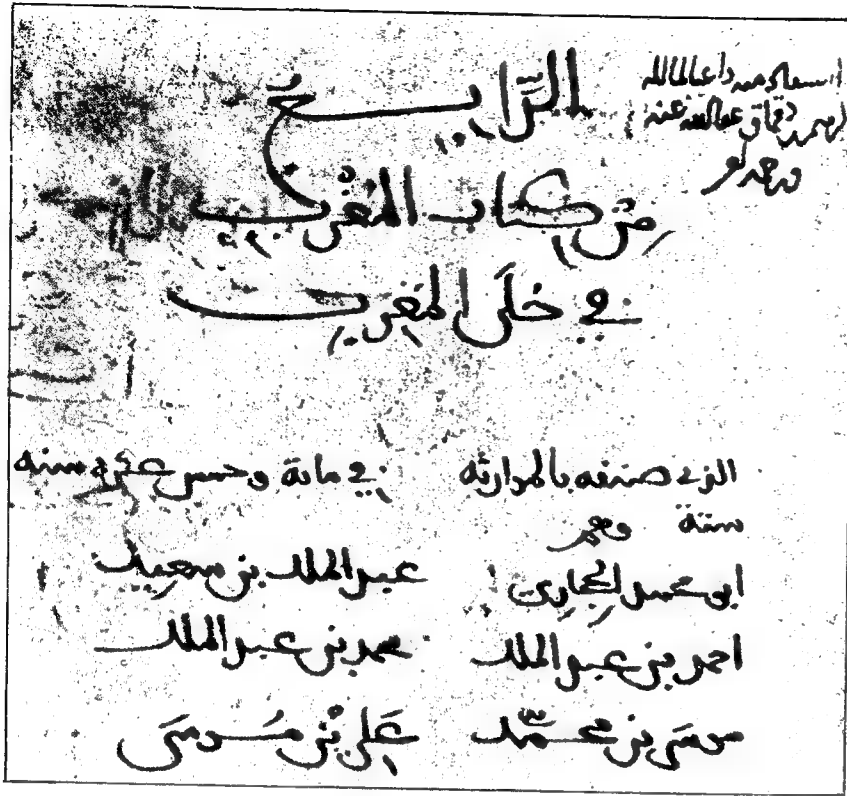 استفاد منه داعيا لمالكه
دقماق عفا الله عنه
الرَّابع
مِن كتاب المُغْرب
في حُلَى المَغرِب
الذي صنفه بالموارثه في مائة وخمس عشرة سنه
ستة وهم
ابو محمد الحجاري عبد الملك بن سعيد
احمد بن عبد الملك محمد بن عبد الملك
موسَى بن محمَّد عَلي بْن مُوسَى